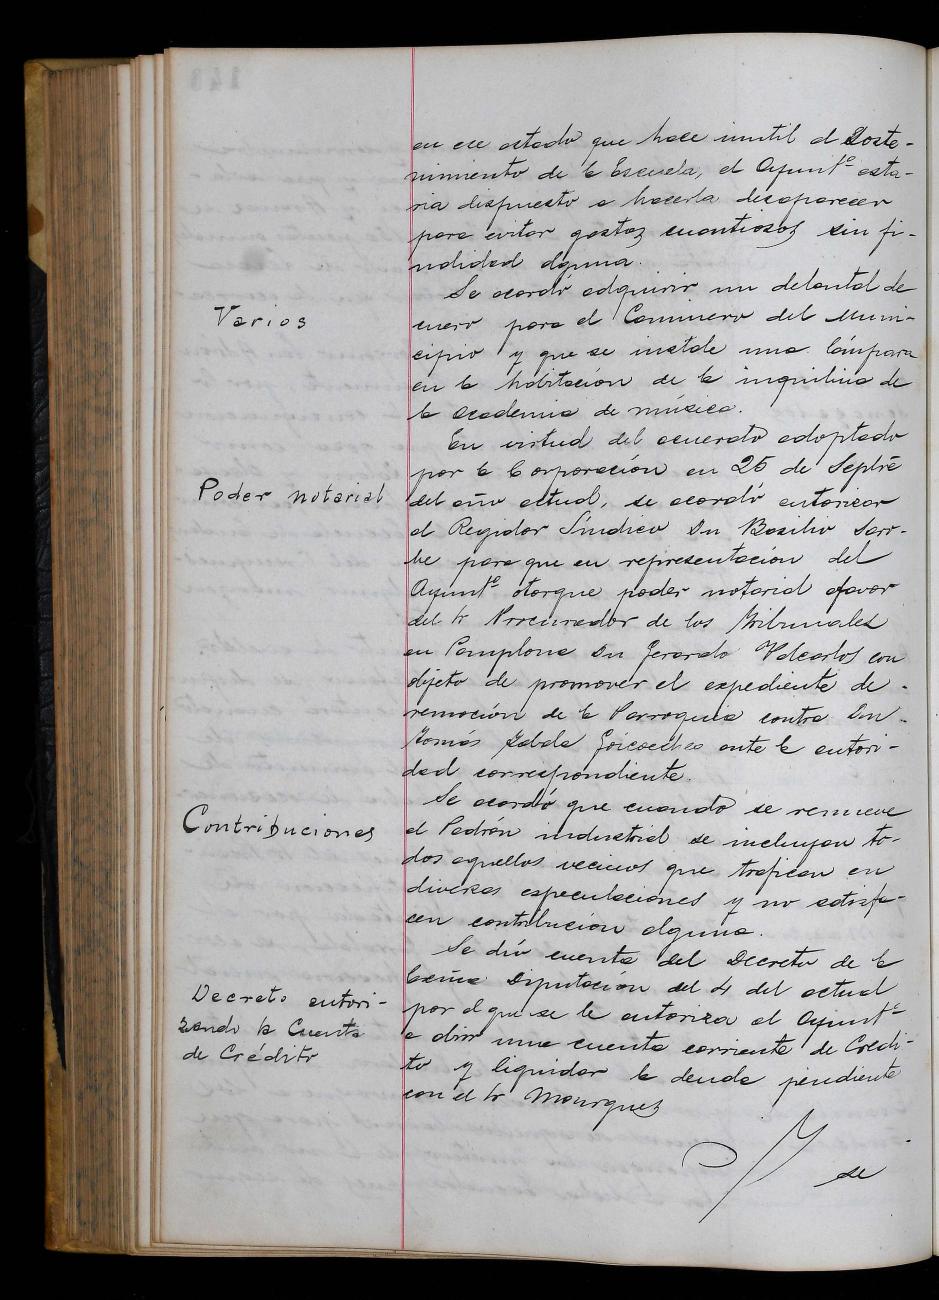 en ese estado que hace inutil el Soste-
nimiento de la Escuela, el Ayuntº esta-
ria dispuesto a hacerla desaparecer
para evitar gastos cuantiosos sin fi-
nalidad alguna.
Varios
Se acordó adquirir un delantal de
cuero para el Caminero del Muni-
cipio y que se instale una lámpara
en la habitación de la inquilina de
la academia de música.
Poder notarial
En virtud del acuerdo adoptado
por la Corporación en 25 de Septre
del año actual, se acordó autorizar
al Regidor Síndico Dn Basilio Sarr-
be para que en representación del
Ayuntº otorque poder notarial afavor
del Sr Procurador de los Tribunales
en Pamplona Dn Gerardo Valcarlos con
objeto de promover el expediente de
remoción de la Parroquia contra Dn
Tomás Zabala Goicoechea ante la autori-
dad correspondiente.
Contribuciones
Se acordó que cuando se renueve
el Padrón industrial se incluyan to-
dos aquellos vecinos que trafican en
diversas especulaciones y no satisfa-
cen contribución alguna.
Decreto autori-
zando la Cuenta
de Crédito
Se dió cuenta del Decreto de la
Excma Diputación del 4 del actual
por el que se le autoriza al Ayuntº
a abrir una cuenta corriente de Crédi-
to y liquidar la deuda pendiente
con el Sr Mourguez
de